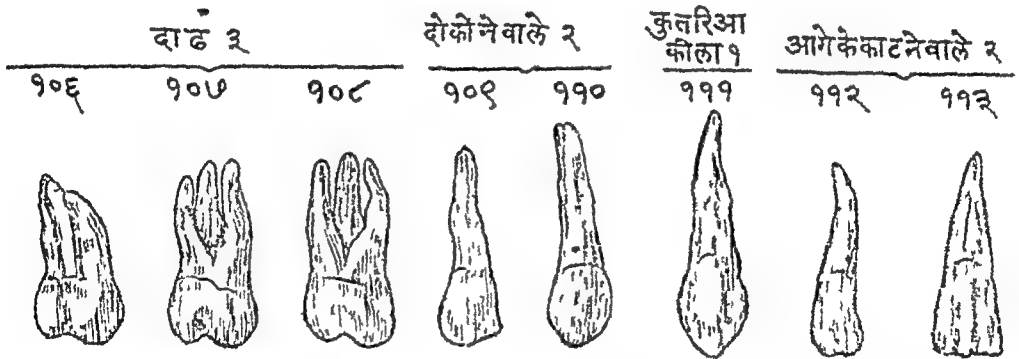 दाढं ३
दोकोंनेवाले २
कुतरिआ
कीला १
आगेकेकाटनेवाले २
१०६ १०७ १०८ १०९ ११० १११ ११२ ११३